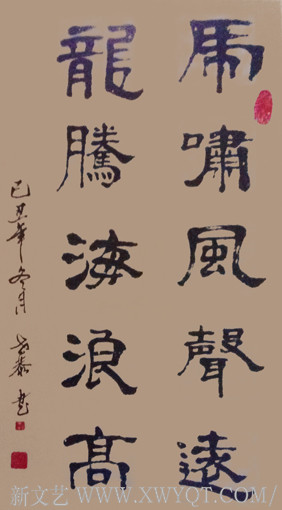 虎嘯風聲遠
龍騰海浪高
己丑年冬月
新文艺 WWW.XWYQT.COM/